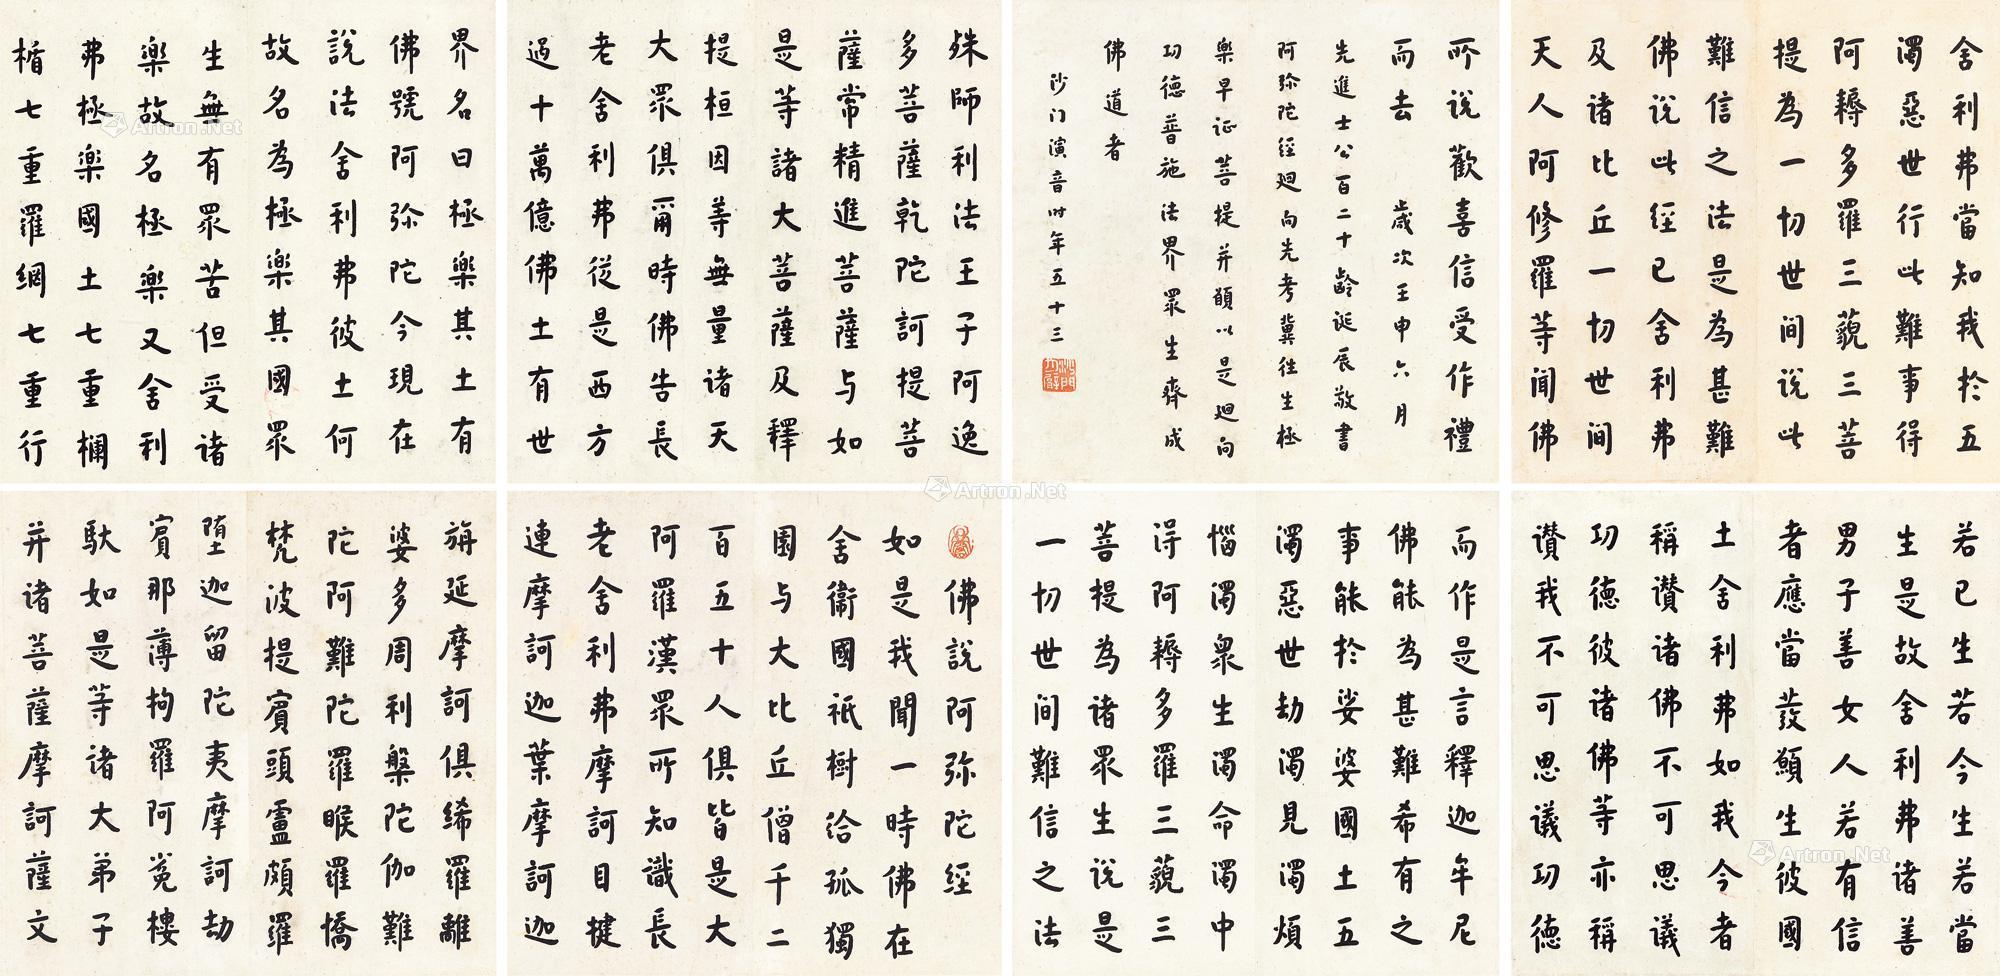 佛說阿弥陀经
如是我聞一時佛在
舍衞國祇樹给孤獨
園与大比丘僧千二
百五十人俱皆是大
阿羅漢眾所知識長
老舍利弗摩訶目揵
連摩訶迦葉摩訶迦
旃延摩訶俱絺羅離
婆多周利槃陀伽難
陀阿難陀羅睺羅憍
梵波提賓頭盧頗羅
堕迦留陀夷摩訶劫
賓那薄拘羅阿㝹樓
馱如是等诸大弟子
并诸菩薩摩訶薩文
殊師利法王子阿逸
多菩薩乾陀訶提菩
薩常精進菩薩与如
是等諸大菩薩及釋
提桓因等無量诸天
大眾俱爾時佛告長
老舍利弗從是西方
過十萬億佛土有世
界名曰極樂其土有
佛號阿弥陀今現在
說法舍利弗彼土何
故名為極樂其國眾
生無有眾苦但受诸
樂故名極樂又舍利
弗極樂國土七重欄
楯七重羅網七重行
若已生若今生若當
生是故舍利弗诸善
男子善女人若有信
者應當發願生彼國
土舍利弗如我今者
稱讚诸佛不可思議
功德彼诸佛等亦稱
讚我不可思議功德
而作是言釋迦牟尼
佛能為甚難希有之
事能於娑婆國土五
濁惡世劫濁見濁煩
惱濁眾生濁命濁中
得阿耨多羅三藐三
菩提為诸眾生说是
一切世间難信之法
舍利弗當知我於五
濁惡世行此難事得
阿耨多羅三藐三菩
提為一切世间说此
難信之法是為甚難
佛说此經已舍利弗
及诸比丘一切世间
天人阿修羅等聞佛
所说歡喜信受作禮
而去 歲次壬申六月
先進士公百二十齡诞辰敬書
阿弥陀经迴向先考冀往生極
樂早证菩提并願以是迴向
功德普施法界眾生齊成
佛道者
沙门演音时年五十三
Artron.Net
Artron.Net
Artron.Net